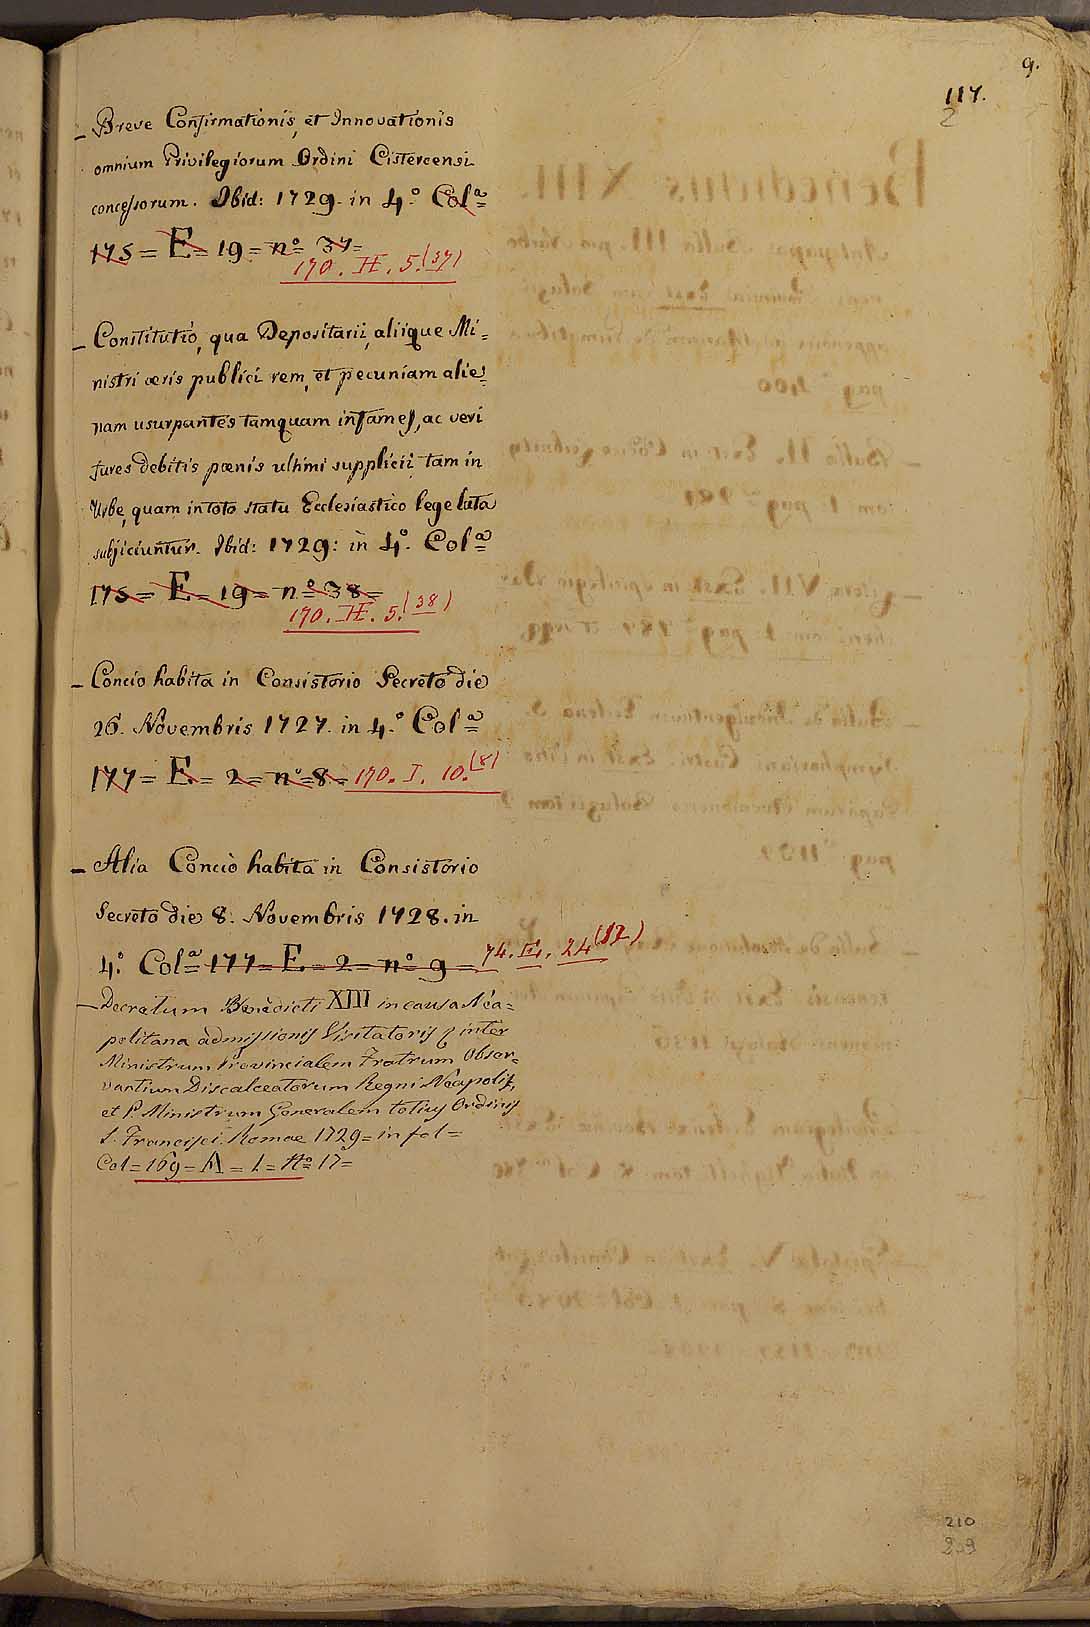 9.
117.
2
- Breve Confirmationis, et Innovationis
omnium Privilegiorum Ordini Cistercensi
concessorum. Ibid: 1729. in 4.º Col.ª =
175 = E = 19 = nº 37 =
170. H. 5.(37)
- Constitutio, qua Depositarii, aliique Mi=
nistri æris publici rem, et pecuniam alie=
nam usurpantes tamquam infames, ac veri
fures debitis pœnis ultimi supplicii tam in
Urbe, quam in toto statu Ecclesiastico lege lata
subjiciuntur. Ibid: 1729: in 4.º Col.ª =
175 = E = 19 = nº 38 =
170. H. 5.(38)
- Concio habita in Consistorio Secreto die
26. Novembris 1727. in 4.º Col.ª =
177 = E = 2 = nº = 8 = 170. I. 10.(8)
- Alia Concio habita in Consistorio
Secreto die 8. Novembris 1728. in
4.º Col.ª = 177 = E = 2 = nº 9 = 74. E. 24(12)
- Decretum Benedicti XIII in causa Nea=
politana admissionis Visitatoris inter
Ministrum Provincialem Fratrum Obser=
vantium Discalceatorum Regni Neapolis,
et P. Ministrum Generalem totius Ordinis
S. Francisci. Romae 1729 = in fol =
Col = 169 = A = 1 = Nº 17 =
210
209